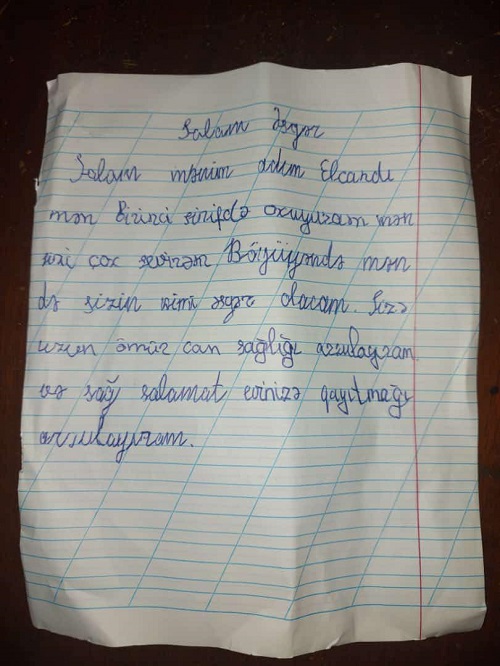 Salam əsgər
Salam mənim adım Elcandı
mən birinci sinifdə oxuyuram mən
səni çox sevirəm Böyüyəndə mən
də sizin kimi əsgər olacam. Sizə
uzun ömür can sağlığı arzulayram
və sağ salamat evinizə qayıtmağı
arzulayıram.